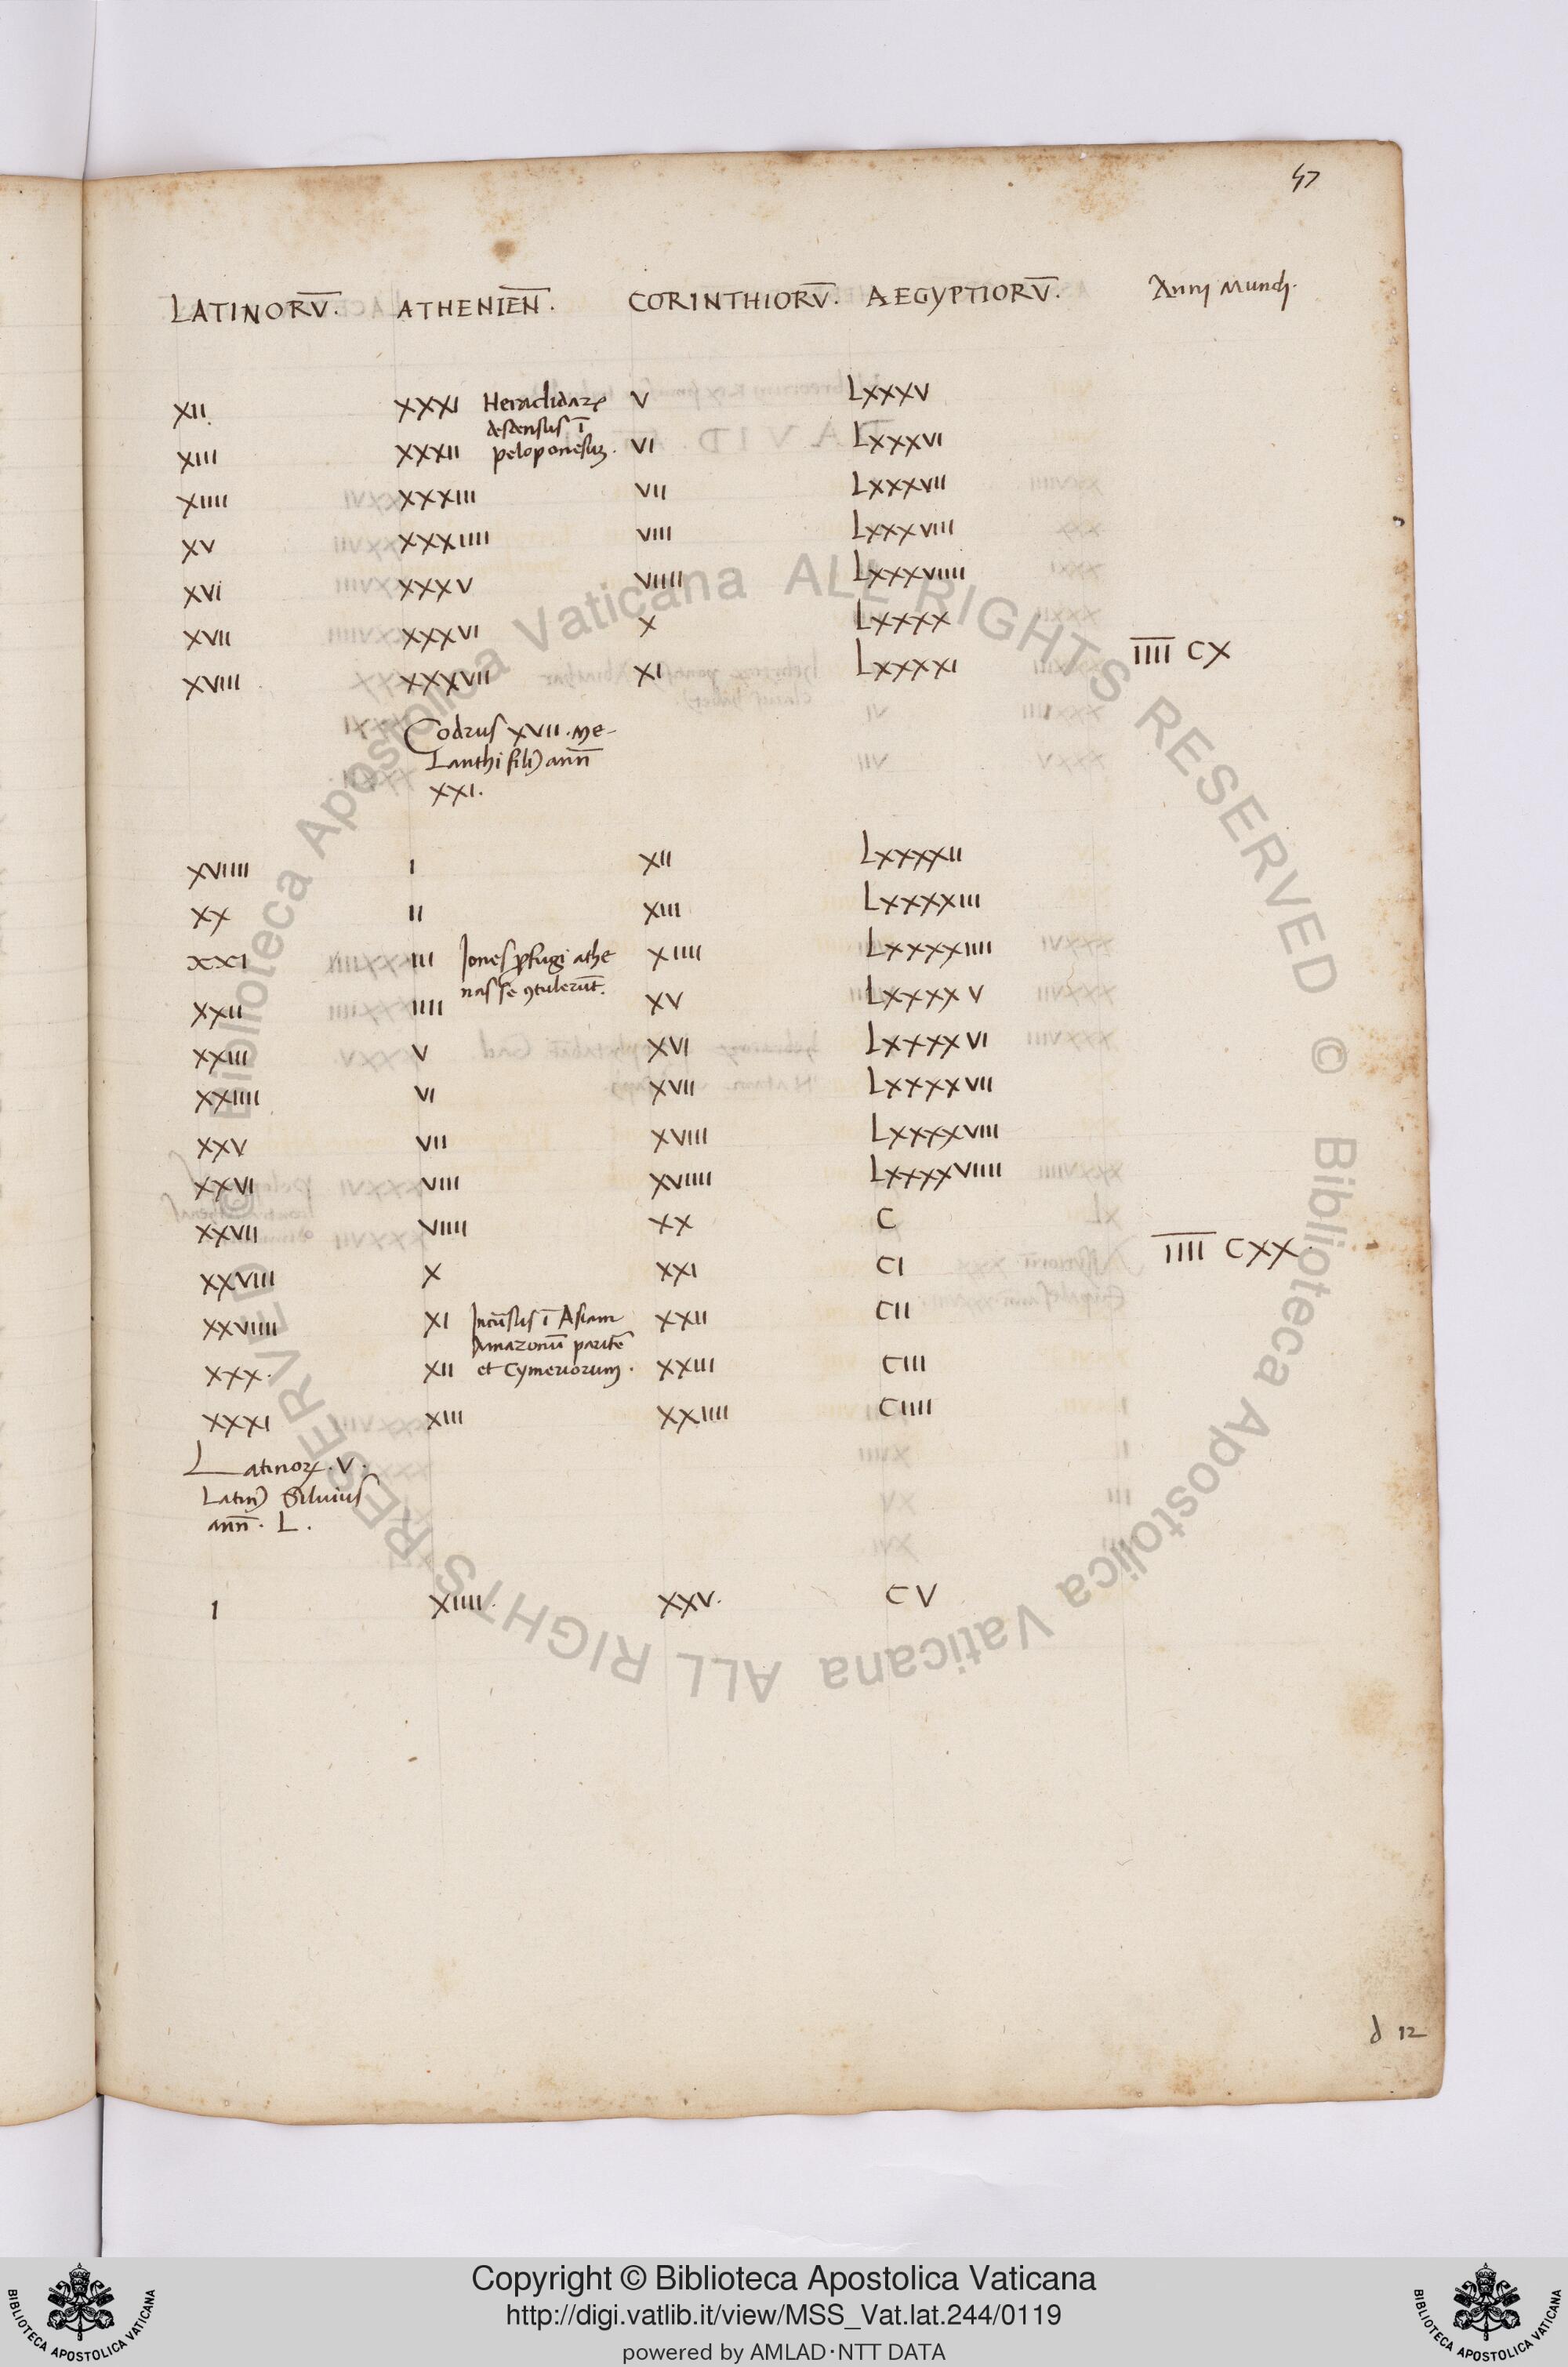 47
LATINORV̅. ATHENIEN̅. CORINTHIORV̅. AEGYPTIORV̅. Anni Mundi.
XII. XXXI Heraclidarꝝ V LXXXV
descensus ī
XIII XXXII peloponesum. VI LXXXVI
XIIII XXXIII VII LXXXVII
XV XXXIIII VIII LXXXVIII
XVI XXXV VIIII LXXXVIIII
XVII XXXVI X LXXXX
XVIII XXXVII XI LXXXXI I̅I̅I̅I̅ CX
Codrus XVII. Me-
lanthi filiꝰ ann̅
XXI.
XVIIII I XII LXXXXII
XX II XIII LXXXXIII
XXI III Iones ꝓfugi athe XIIII LXXXXIIII
nas se ꝯtulerūt.
XXII IIII XV LXXXXV
XXIII V XVI LXXXXVI
XXIIII VI XVII LXXXXVII
XXV VII XVIII LXXXXVIII
XXVI VIII XVIIII LXXXXVIIII
XXVII VIIII XX C
XXVIII X XXI CI I̅I̅I̅I̅ CXX.
XXVIIII XI Incūsus ī Asiam XXII CII
Amazonū paritē
XXX. XII et Cymeriorum. XXIII CIII
XXXI XIII XXIIII CIIII
Latinoꝝ. V.
Latinꝰ Siluius
ann̅. L.
I XIIII. XXV. CV
d 12
Biblioteca Apostolica Vaticana ALL RIGHTS RESERVED ©
Biblioteca Apostolica Vaticana ALL RIGHTS RESERVED ©
Copyright © Biblioteca Apostolica Vaticana
http://digi.vatlib.it/view/MSS_Vat.lat.244/0119
powered by AMLAD·NTT DATA
BIBLIOTECA APOSTOLICA VATICANA
BIBLIOTECA APOSTOLICA VATICANA